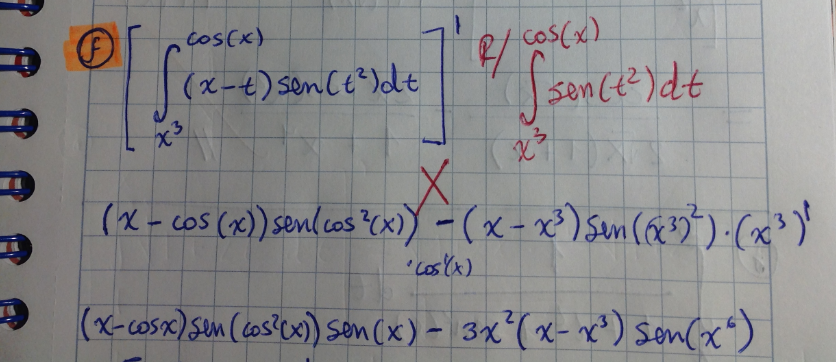 f [ ∫_{x³}^{cos(x)} (x-t) sen(t²)dt ]' R/ ∫_{x³}^{cos(x)} sen(t²)dt
(x - cos(x)) sen(cos²(x)) - (x - x³) sen((x³)²) · (x³)'
· cos'(x)
(x-cosx) sen(cos²(x)) sen(x) - 3x²(x - x³) sen(x⁶)